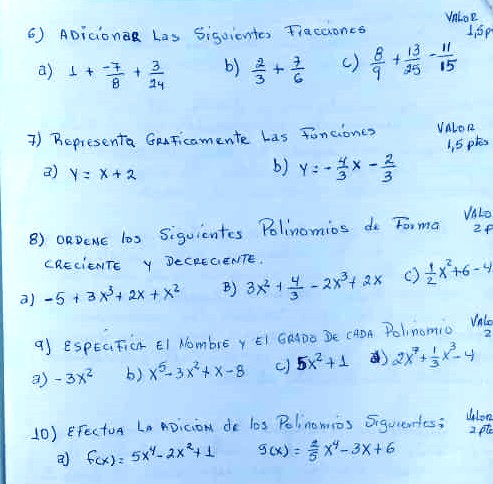 VALOR
6) ADicionaR Las Siguientes Fracciones 1,5 p
a) 1 + -7/8 + 3/24 b) 2/3 + 7/6 c) 8/9 + 13/25 - 11/15
7) Representa GRAFicamente Las Funciones VALOR 1,5 ptos
a) y = x + 2 b) y = - 4/3 x - 2/3
8) ORDENE los Siguientes Polinomios de Forma VALO
CRECIENTE y DECRECIENTE. 2 P
a) -5 + 3x³ + 2x + x² B) 3x² + 4/3 - 2x³ + 2x c) 1/2 x² + 6 - 4
9) ESPECIFICA El Nombre y El GRADO DE CADA Polinomio Valo 2
a) -3x² b) x⁵ - 3x² + x - 8 c) 5x² + 1 d) 2x⁷ + 1/3 x³ - 4
10) EFectuA LA ADICION de los Polinomios Siguientes: Valor 2 pto
a) f(x) = 5x⁴ - 2x² + 1 g(x) = 2/5 x⁴ - 3x + 6